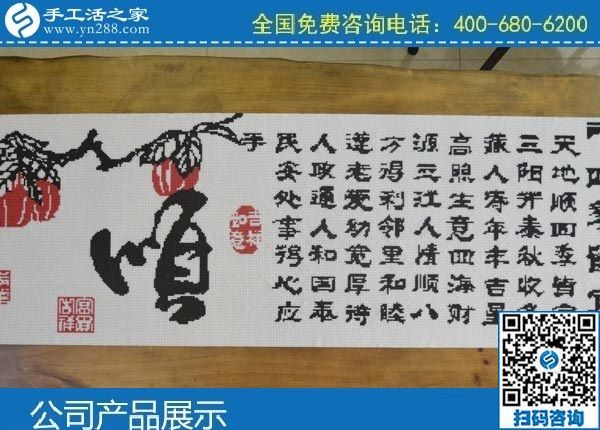 手工活之家
www.yn288.com
全国免费咨询电话：400-680-6200
天地顺四季皆
三阳开泰秋收
藏人寿年丰吉星
高照生意四海财
源三江人情顺八
方得利邻里和睦
遵老爱幼宽厚待
人政通人和国泰
民安处事称心应
手
吉祥
如意
顺
富贵
吉祥
公司产品展示
扫码咨询